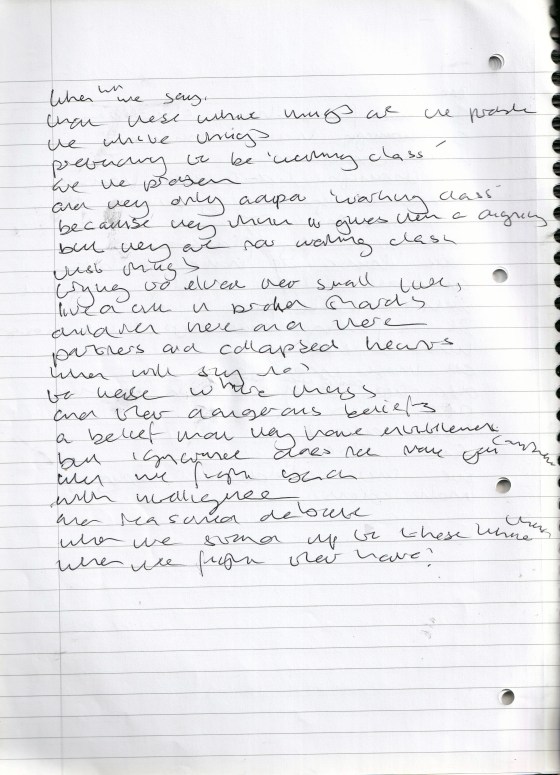 when will we say.
that these white things are the problem
the white things
pretending to be 'working class'
are the problem
and they only adopt 'working class'
because they think it gives them a dignity
but they are not working class
just things
trying to their small
lives in broken shards
children here and there
partners and collapsed hearts
when will say no?
to these white things
and their dangerous beliefs
a belief that they have entitlement
but ignorance does not
when we fight back
with intelligence
and reasoned debate
when we stand up to these white things
when we fight their hate?